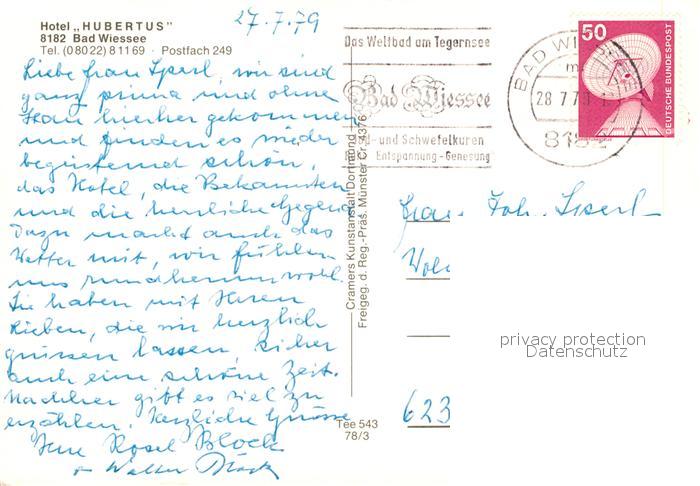 Hotel „HUBERTUS"
8182 Bad Wiessee
Tel. (08022) 81169 · Postfach 249
27.7.79
Liebe Frau Sperl, wir sind
ganz prima und ohne
Stau hierher gekommen
und finden es wieder
begeisternd schön,
das Hotel, die Bekannten
und die herrliche Gegend
Dazu macht auch das
Wetter mit, wir fühlen
uns rundherum wohl.
Sie haben mit Ihren
Lieben, die wir herzlich
grüssen lassen, sicher
auch eine schöne Zeit.
Nachher gibt es viel zu
erzählen. Herzliche Grüsse
Ihre Rosel Block
+ Walter Block
Das Weltbad am Tegernsee
Bad Wiessee
d- und Schwefelkuren
Entspannung - Genesung
BAD WI
28.7.79
8182
50
DEUTSCHE BUNDESPOST
Cramers Kunstanstalt Dortmund
Freigeg. d. Reg.-Präs. Münster Cr. 4376
Tee 543
78/3
Frau Joh. Sperl
623
privacy protection
Datenschutz